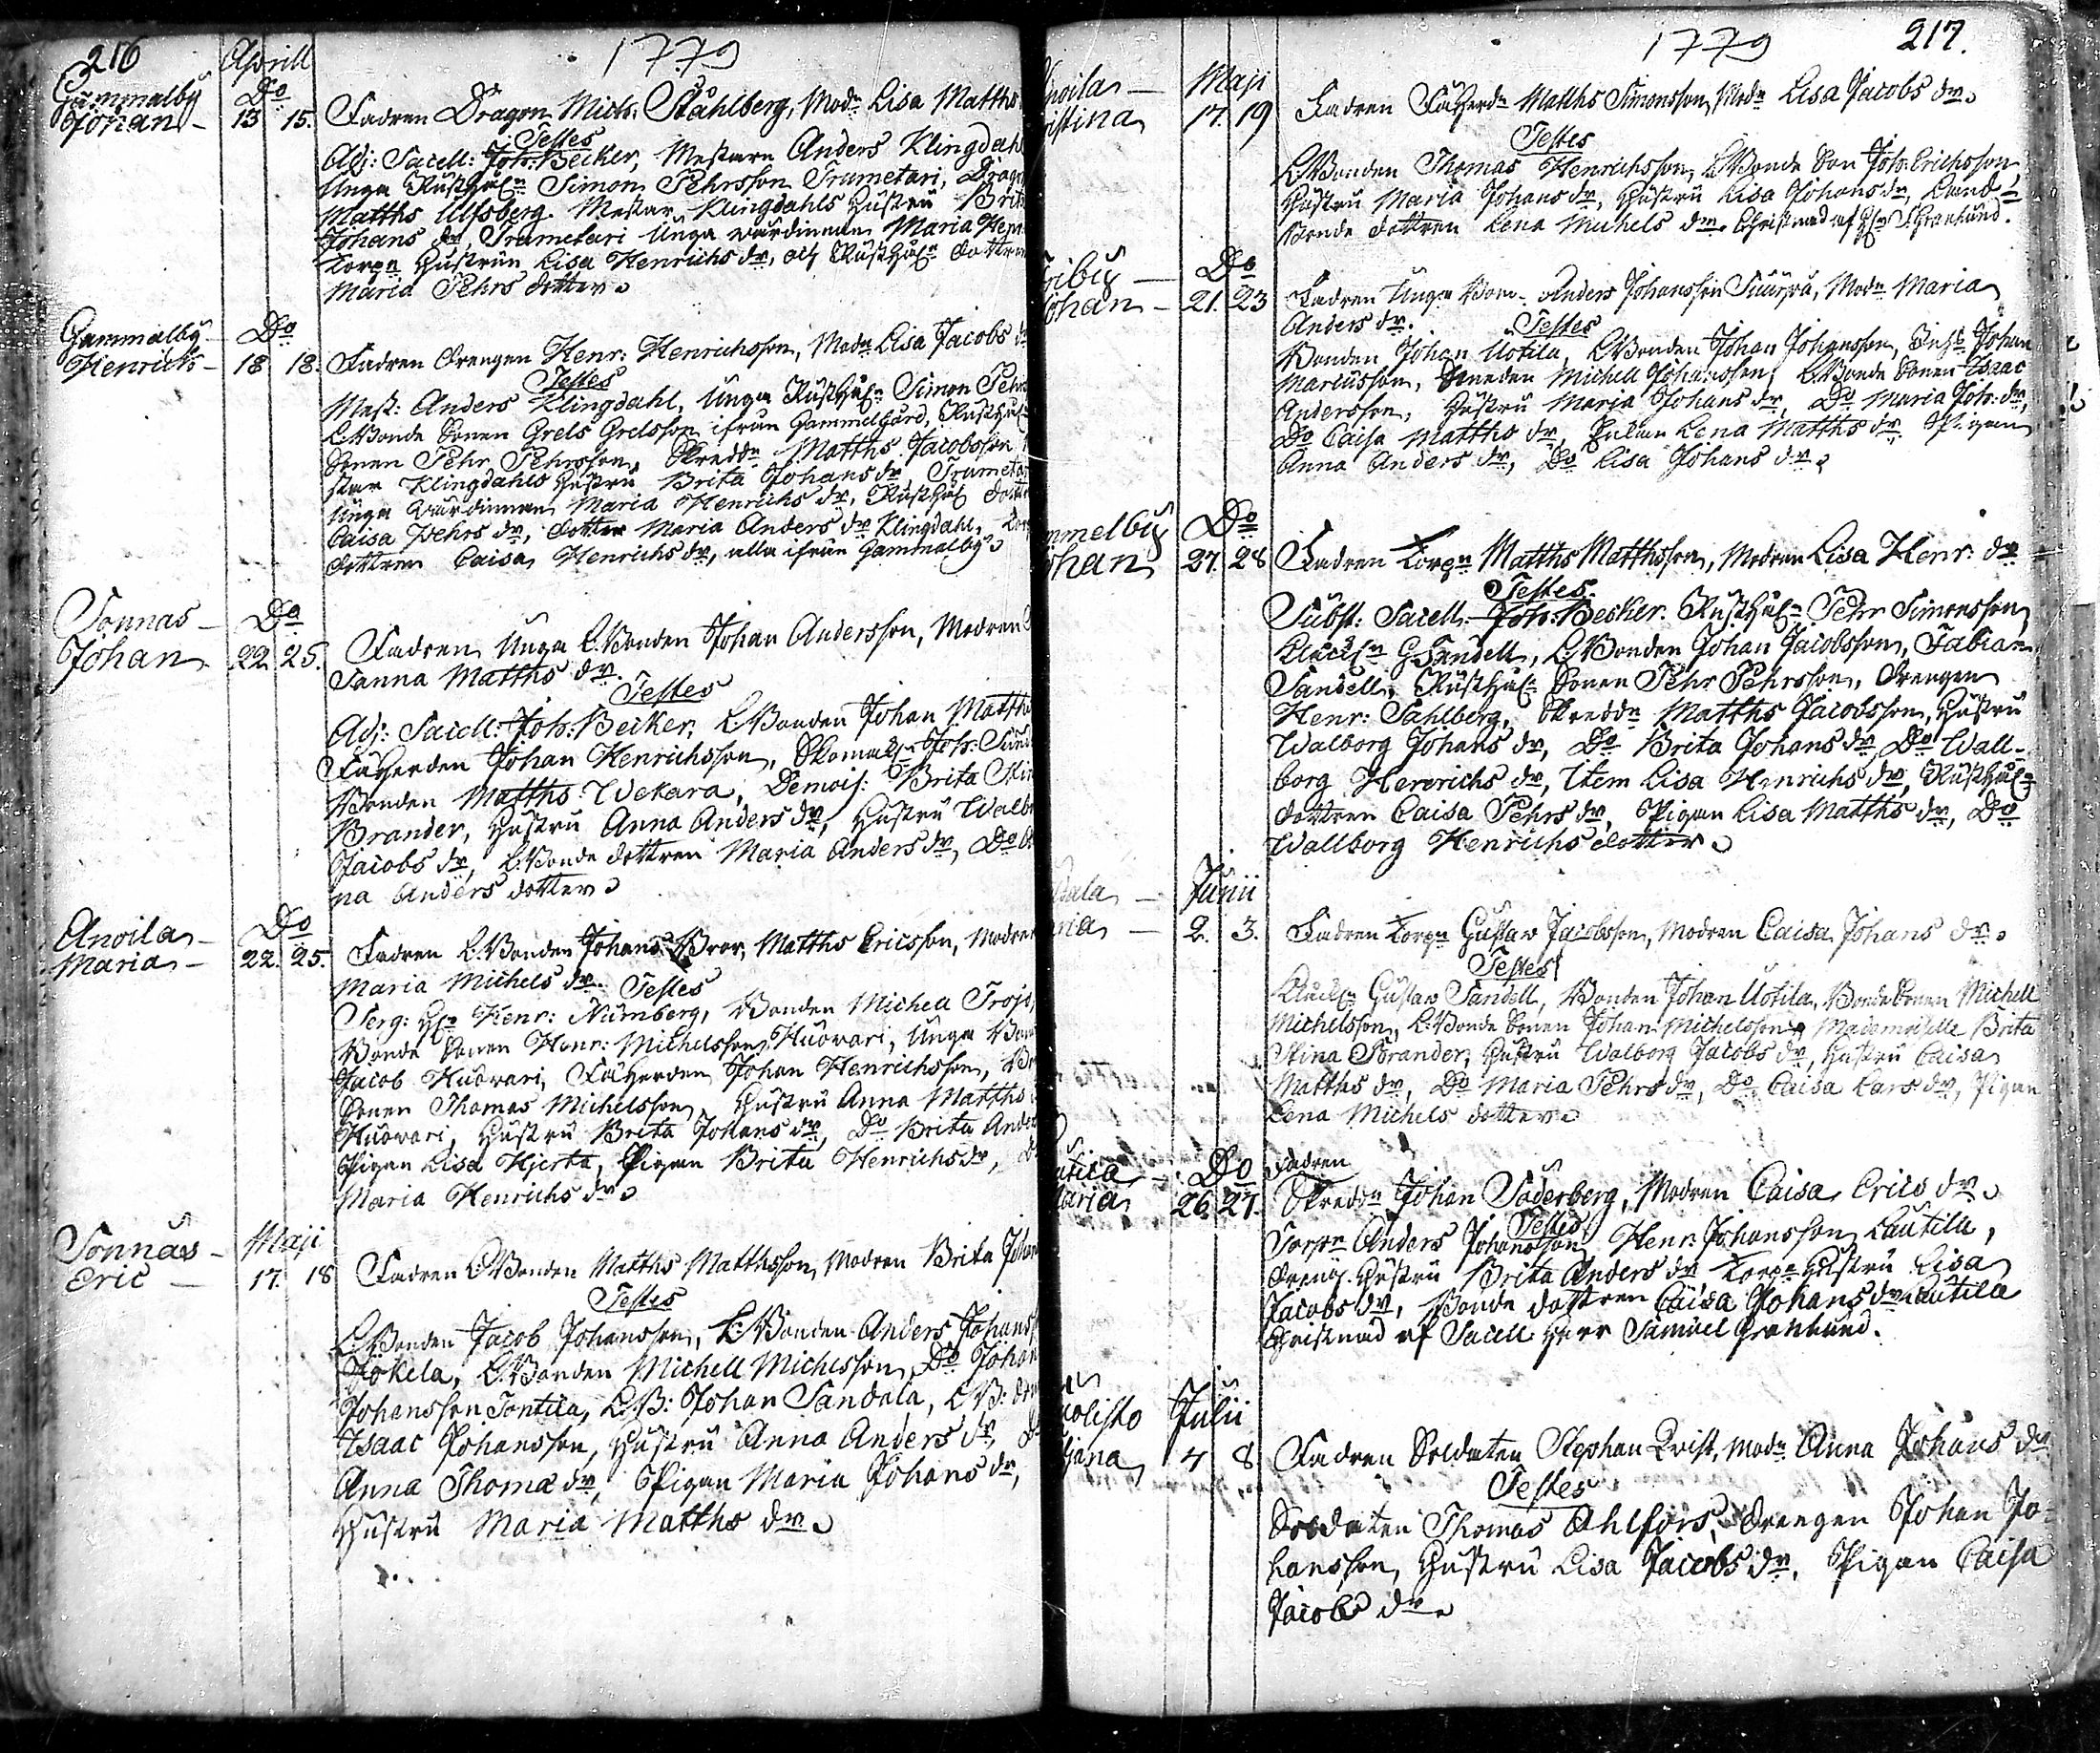 216 Aprill 1779
Gammalby Do
Johan - 13 15. Fadren Dragon Mich: Ståhlberg, Modn Lisa Matths
Testes
Adj: Sacell: Joh: Becker, Mestare Anders Klingdahl
Unga Rusthålln Simon Pehrsson Trumetari,
Matths Ulfsberg. Mestar Klingdahls Hustru
Johans dr, Trumetari Unga wärdinnan Maria
Torpn Hustrun Lisa Henrichs dr, och Rusthålln dottren
Maria Pehrs dotter
Gammalby - Do
Henrich - 18 18. Fadren Drengen Henr: Henrichsson, Modn Lisa Jacobs dr
Testes
Mast: Anders Klingdahl, Unga Rusthålln Simon
L.Bonde Sonen Grels Grelsson ifrån Gammelgård,
Sonen Pehr Pehrsson, Skreddn Matths Jacobsson
star Klingdahls Hustru Brita Johans dr,
Unga wärdinnan Maria Henrichs dr, Rusthåll
Caisa Pehrs dr, dotter Maria Anders dr Klingdahl,
dottren Caisa Henrichs dr, alla ifrån Gammalby
Tonnas - Do
Johan 22 25. Fadren Unga L.Bonden Johan Andersson, Modren
Sanna Matths dr.
Testes
Adj: Sacell: Joh: Becker, L.Bonden Johan
Fäherden Johan Henrichsson, Skomakn Joh:
Bonden Matths Wekara, Demois: Brita
Brander, Hustru Anna Anders dr, Hustru
Jacobs dr, L.Bonde dottren Maria Anders dr, Do
na Anders dotter
Anoila - Do
Maria - 22. 25. Fadren L.Bonden Johans Bror, Matths Ericsson, Modren
Maria Michels dr. Testes
Serg: Hr Henr: Nürnberg, Bonden Michell
Bonde Sonen Henr: Michelsson Huowari, Unga
Jacob Huowari, Fäherden Johan Henrichsson,
Sonen Thomas Michelsson, Hustru Anna Matths
Huowari, Hustru Brita Johans dr, Do Brita
Pigan Lisa Hjerta, Pigan Brita Henrichs dr,
Maria Henrichs dr
Tonnas - Maji
Eric - 17. 18 Fadren L.Bonden Matths Matthsson, Modren Brita
Testes
L.Bonden Jacob Johansson, L.Bonden Anders
Jökela, L.Bonden Michell Michelsson, Do Johan
Johansson Tontila, L.B: Johan Sandala, L.B:
Isaac Johansson, Hustru Anna Anders dr,
Anna Thomæ dr, Pigan Maria Johans dr,
Hustru Maria Matths dr
1779 217.
noila - Maji
ristina 17. 19 Fadren Fäherdn Matths Simonsson, Modn Lisa Jacobs dr
Testes
L.Bonden Thomas Henrichsson, L.Bonde Son Joh: Erichsson,
Hustru Maria Johans dr, Hustru Lisa Johans dr, Land
Bonde dottren Lena Michels dr. Christnad af Hr S: Granlund.
riby - Do
ohan - 21. 23 Fadren Unga Bon- Anders Johansson Suurpä, Modn Maria
Anders dr. Testes
Bonden Johan Uotila, L.Bonden Johan Johansson, Johan
Mariusson, Smeden Michell Johansson, L.Bonde Sonen Isaac
Andersson, Hustru Maria Johans dr, Do Maria Joh: dr,
Do Caisa Matths dr, Lena Matths dr Pigan
Anna Anders dr, Do Lisa Johans dr
mmelby Do
ohan 27. 28 Fadren Torpn Matths Matthsson, Modren Lisa Henr: dr
Testes.
Subst: Sacell: Joh: Becker. Rusthålln Pehr Simonsson
G Sandell, L.Bonden Johan Jacobsson, Fabian
Sandell, Rusthålln Sonen Pehr Pehrsson, Drengen
Henr: Sahlberg, Skreddn Matths Jacobsson, Hustru
Walborg Johans dr, Do Brita Johans dr, Do Wall-
borg Henrichs dr, Item Lisa Henrichs dr, Rusthålln
dottren Caisa Pehrs dr, Pigan Lisa Matths dr, Do
Wallborg Henrichs dotter
dala - Junii
ria - 2. 3. Fadren Torpn Gustav Jacobsson, Modren Caisa Johans dr
Testes
Gustav Sandell, Bonden Johan Uotila, Bonde Sonen Michell
Michelsson, L.Bonde Sonen Johan Michelsson, Mademoiselle Brita
Stina Brander, Hustru Walborg Jacobs dr, Hustru Caisa
Matths dr, Do Maria Pehrs dr, Do Caisa Lars dr, Pigan
Lena Michels dotter
utila - Do Fadren
aria 26. 27. Skreddn Johan Söderberg, Modren Caisa Erics dr
Testes
Torpn Anders Johansson, Henr: Johansson Lautila,
Dreng. Hustru Brita Anders dr Torpn Hustru Lisa
Jacobs dr, Bonde dottren Caisa Johans dr Lautila
Christnad af Sacell. Herr Samuel Granlund.
olisto Julii
jana 4 8 Fadren Soldaten Stephan Qvist, Modn Anna Johans dr
Testes
Soldaten Thomas Ahlfors, Drengen Johan Jo-
hansson, Hustru Lisa Jacobs dr, Pigan Caisa
Jacobs dr